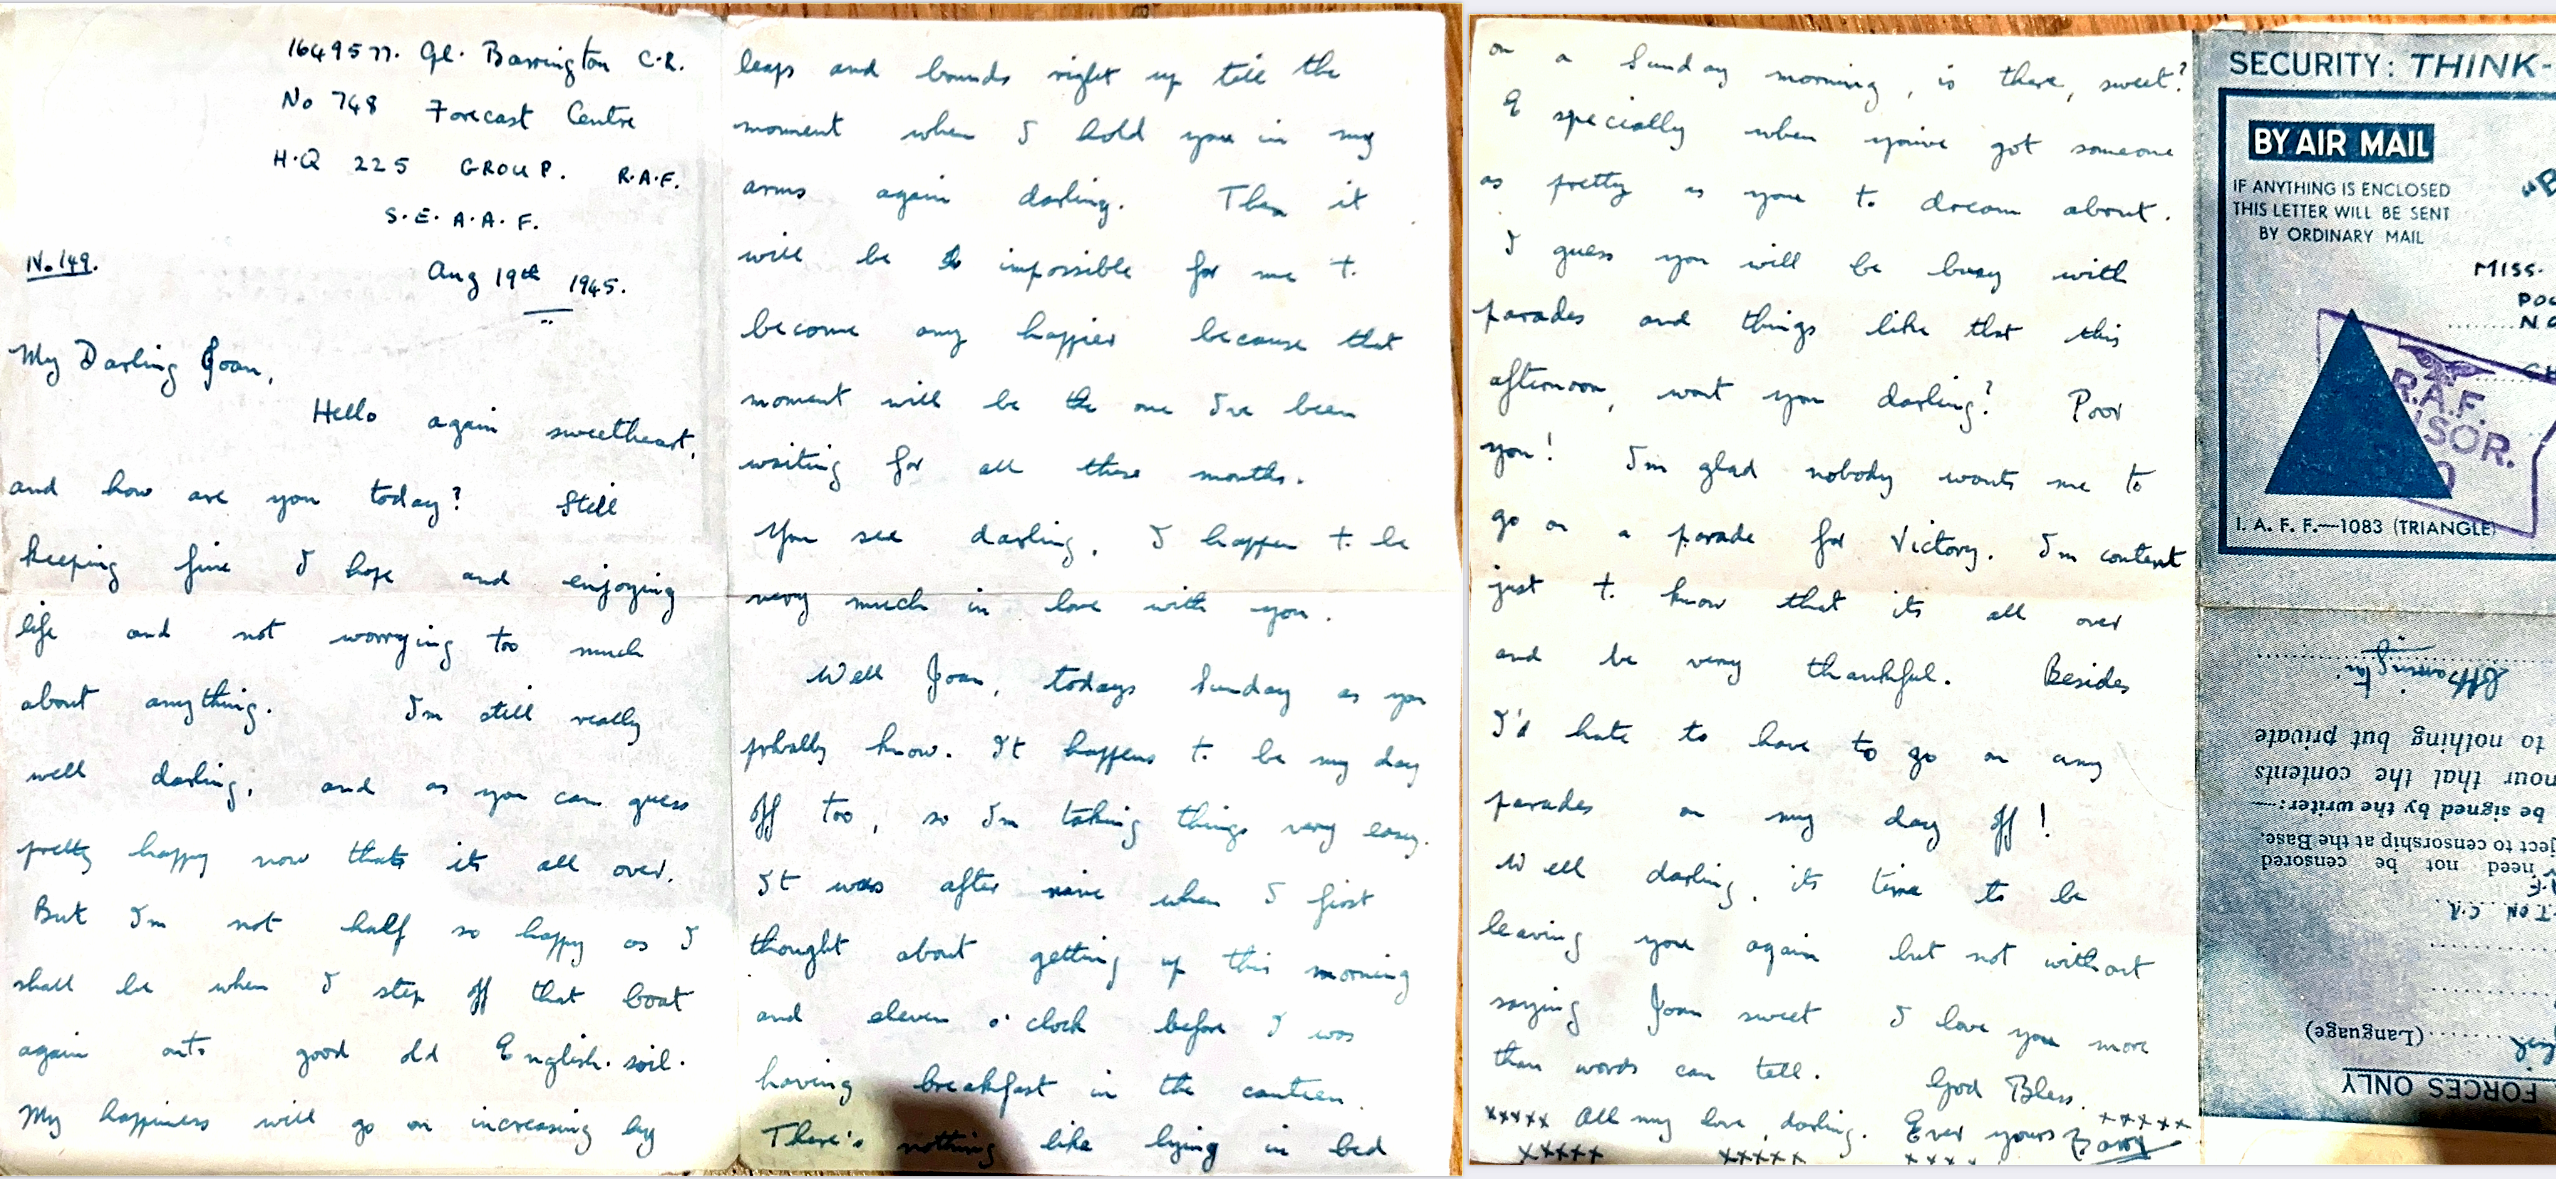 1649577. Gp. Barrington C.R.
No 748 Forecast Centre
H.Q 225 GROUP. R.A.F.
S.E.A.A.F.
No. 149.
Aug 19th 1945.
My Darling Joan,
Hello again sweetheart,
and how are you today? Still
keeping fine I hope and enjoying
life and not worrying too much
about anything. I'm still really
well darling, and as you can guess
pretty happy now thats its all over.
But I'm not half so happy as I
shall be when I step off that boat
again onto good old English soil.
My happiness will go on increasing by
leaps and bounds right up till the
moment when I hold you in my
arms again darling. Then it
will be impossible for me to
become any happier because that
moment will be the one I've been
waiting for all these months.
You see darling, I happen to be
very much in love with you.
Well Joan, todays Sunday as you
probably know. It happens to be my day
off too, so I'm taking things very easy.
It was after nine when I first
thought about getting up this morning
and eleven o'clock before I was
having breakfast in the canteen.
There's nothing like lying in bed
on a Sunday morning, is there, sweet?
Especially when you've got someone
as pretty as you to dream about.
I guess you will be busy with
parades and things like that this
afternoon, wont you darling? Poor
you! I'm glad nobody wants me to
go on a parade for Victory. I'm content
just to know that its all over
and be very thankful. Besides
I'd hate to have to go on any
parades on my day off!
Well darling, its time to be
leaving you again but not without
saying Joan sweet I love you more
than words can tell. God Bless.
xxxxx All my love, darling. Ever yours Barry xxxxx
xxxxx xxxxx xxxx
SECURITY: THINK-
BY AIR MAIL
IF ANYTHING IS ENCLOSED
THIS LETTER WILL BE SENT
BY ORDINARY MAIL
MISS.
R.A.F.
I. A. F. F.—1083 (TRIANGLE)
CRBarrington
to nothing but private
nour that the contents
be signed by the writer:—
ject to censorship at the Base.
need not be censored
TON C.R.
(Language)
FORCES ONLY